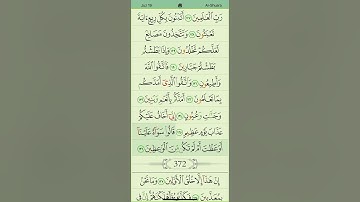 Juz 19
Al-Shuara
رَبِّ ٱلْعَٰلَمِينَ ١٢٧ أَتَبْنُونَ بِكُلِّ رِيعٍ ءَايَةً
تَعْبَثُونَ ١٢٨ وَتَتَّخِذُونَ مَصَانِعَ
لَعَلَّكُمْ تَخْلُدُونَ ١٢٩ وَإِذَا بَطَشْتُم
بَطَشْتُمْ جَبَّارِينَ ١٣٠ فَٱتَّقُوا۟ ٱللَّهَ
وَأَطِيعُونِ ١٣١ وَٱتَّقُوا۟ ٱلَّذِىٓ أَمَدَّكُم
بِمَا تَعْلَمُونَ ١٣٢ أَمَدَّكُم بِأَنْعَٰمٍ وَبَنِينَ ١٣٣
وَجَنَّٰتٍ وَعُيُونٍ ١٣٤ إِنِّىٓ أَخَافُ عَلَيْكُمْ
عَذَابَ يَوْمٍ عَظِيمٍ ١٣٥ قَالُوا۟ سَوَآءٌ عَلَيْنَآ
أَوَعَظْتَ أَمْ لَمْ تَكُن مِّنَ ٱلْوَٰعِظِينَ ١٣٦
372
إِنْ هَٰذَآ إِلَّا خُلُقُ ٱلْأَوَّلِينَ ١٣٧ وَمَا نَحْنُ
بِمُعَذَّبِينَ ١٣٨ فَكَذَّبُوهُ فَأَهْلَكْنَٰهُمْ إِنَّ فِى